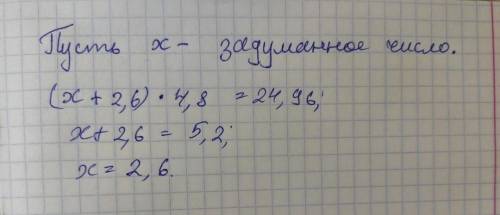 Пусть х - задуманное число.
(х + 2,6) • 4,8 = 24,96;
х + 2,6 = 5,2;
х = 2,6.